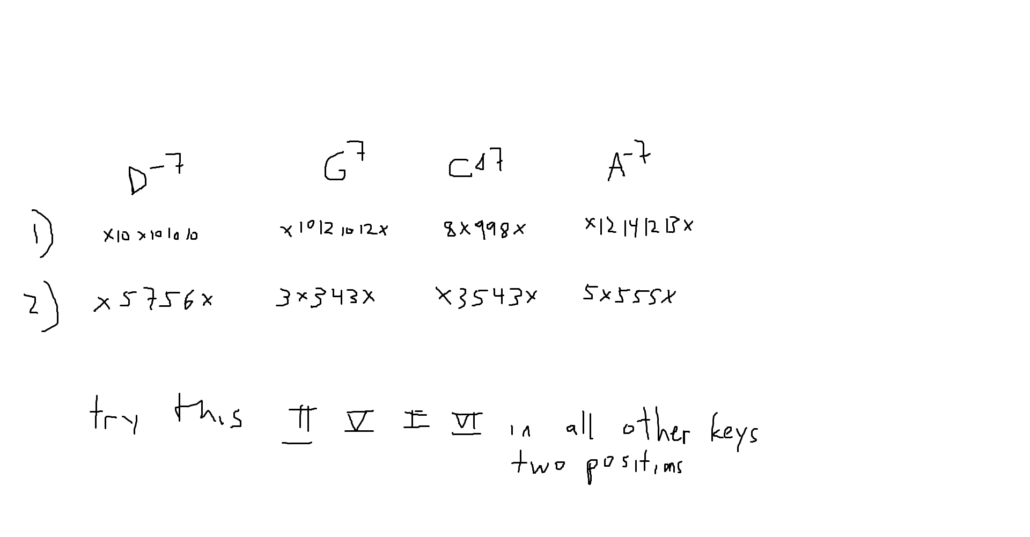 D-7 G7 CΔ7 A-7
1) x10x101010 x10121012x 8x998x x12141213x
2) x5756x 3x343x x3543x 5x555x
try this II V I VI in all other keys
two positions